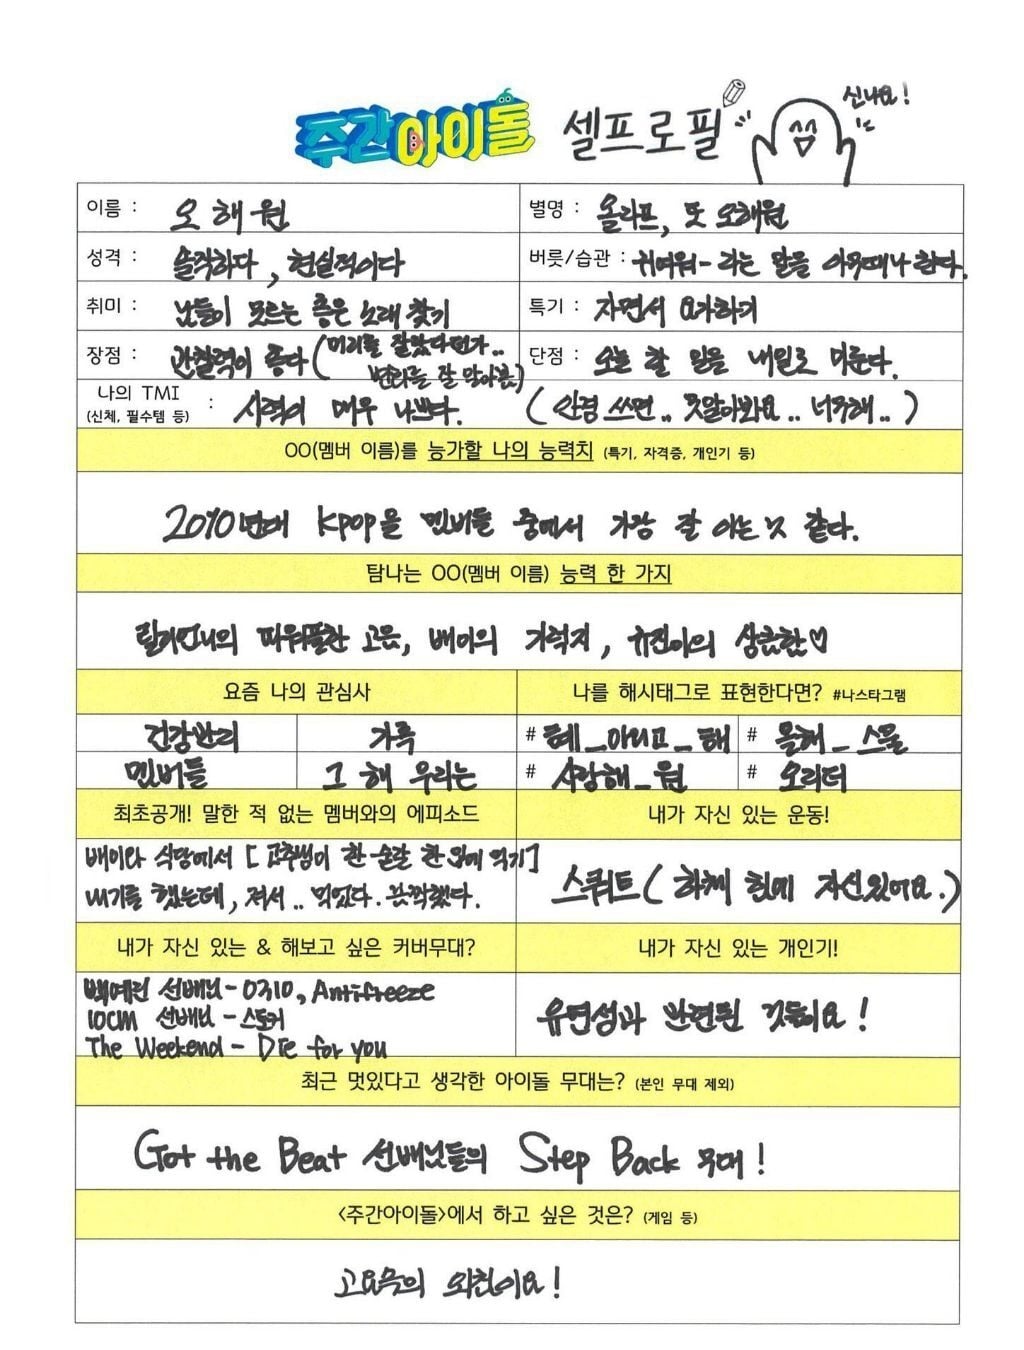 주간아이돌 셀프로필
신나요!
이름 : 오해원
별명 : 올라프, 또 오해원
성격 : 솔직하다, 현실적이다
버릇/습관 : 귀여워~ 라는 말을 아무때나 한다.
취미 : 남들이 모르는 좋은 노래 찾기
특기 : 자면서 요가하기
장점 : 관찰력이 좋다 (머리를 잘랐다던가..
변화를 잘 알아봄)
단점 : 오늘 할 일을 내일로 미룬다.
나의 TMI
(신체, 필수템 등) : 시력이 매우 나쁘다. (안경 쓰면.. 못알아봐요.. 너무해..)
OO(멤버 이름)를 능가할 나의 능력치 (특기, 자격증, 개인기 등)
2010년대 Kpop을 멤버들 중에서 가장 잘 아는 것 같다.
탐나는 OO(멤버 이름) 능력 한 가지
릴리언니의 파워풀한 고음, 배이의 기럭지, 규진이의 상큼함♡
요즘 나의 관심사
나를 해시태그로 표현한다면? #나스타그램
건강관리
가족
# 혜_아니고_해
# 올해_스물
멤버들
그 해 우리는
# 사랑해_원
# 오리더
최초공개! 말한 적 없는 멤버와의 에피소드
내가 자신 있는 운동!
배이와 식당에서 [고추냉이 한 숟갈 한입에 먹기]
내기를 했는데, 져서.. 먹었다. 끔찍했다.
스쿼트 (하체 힘에 자신있어요.)
내가 자신 있는 & 해보고 싶은 커버무대?
내가 자신 있는 개인기!
백예린 선배님 - 0310, Antifreeze
10CM 선배님 - 스토커
The Weekend - Die for you
유연성과 관련된 것들이요!
최근 멋있다고 생각한 아이돌 무대는? (본인 무대 제외)
Got the Beat 선배님들의 Step Back 무대!
<주간아이돌>에서 하고 싶은 것은? (게임 등)
고요속의 외침이요!